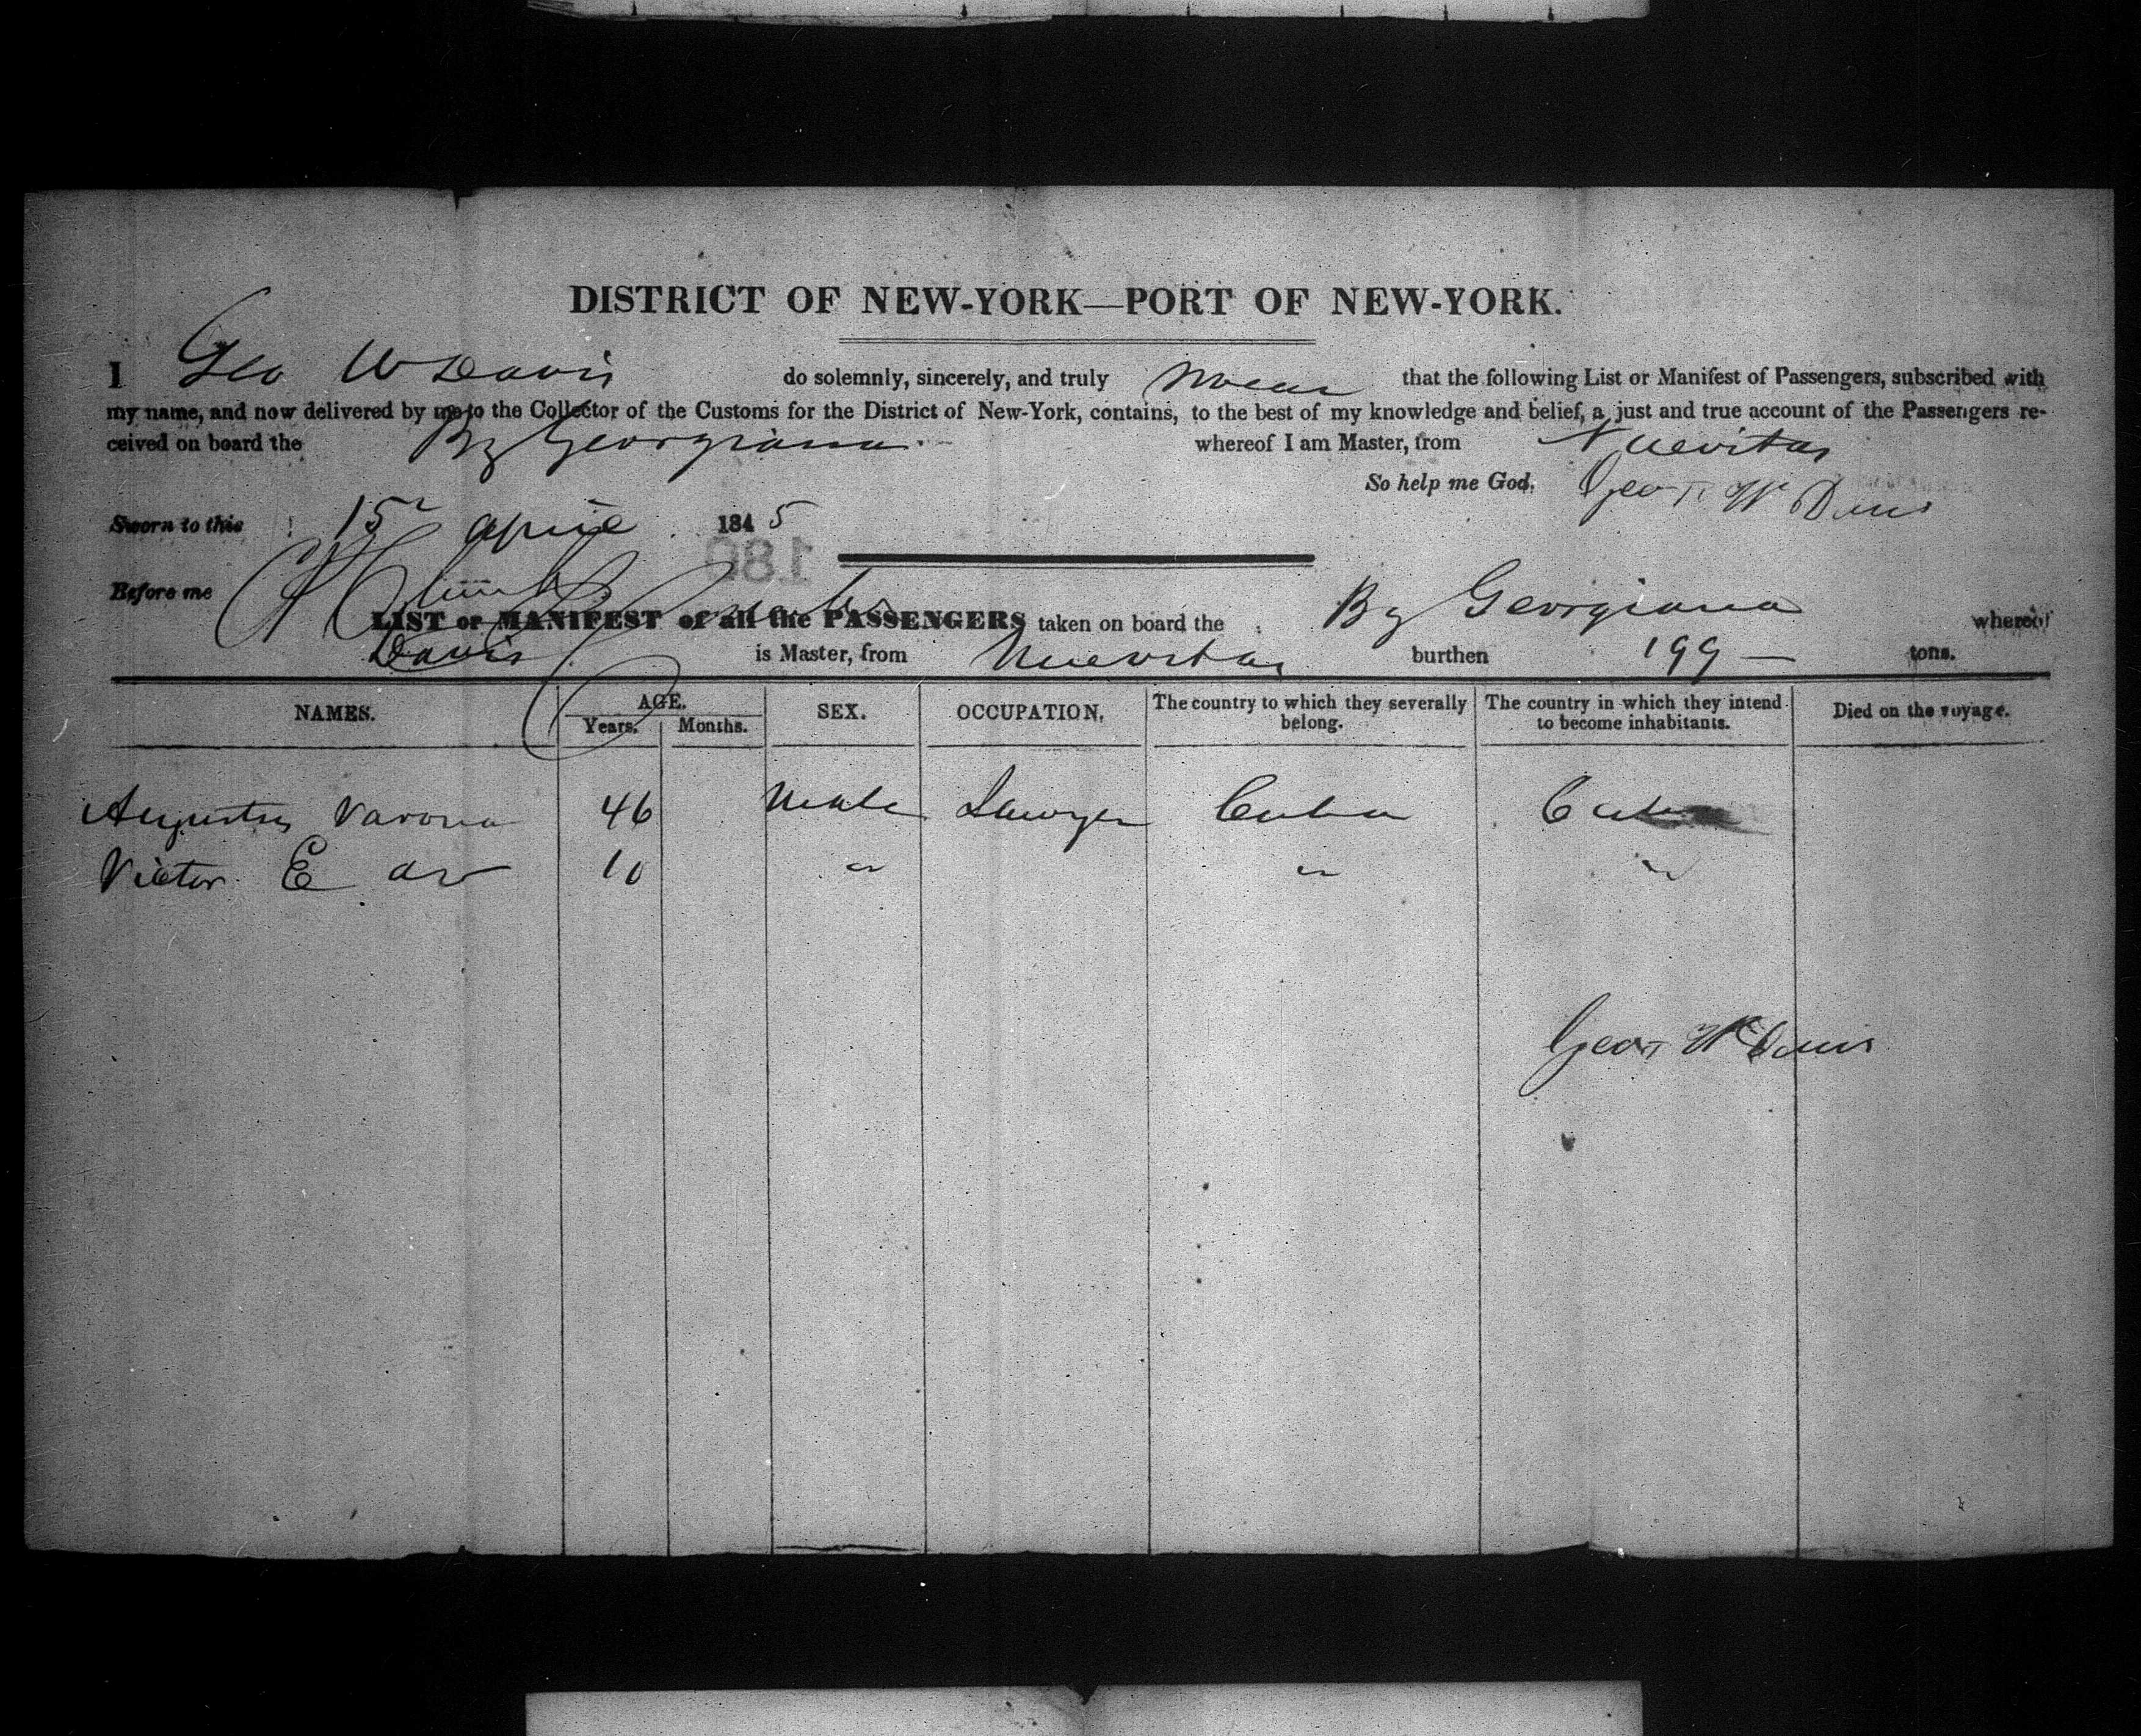 DISTRICT OF NEW-YORK—PORT OF NEW-YORK.
I Geo W Davis do solemnly, sincerely, and truly swear that the following List or Manifest of Passengers, subscribed with
my name, and now delivered by me to the Collector of the Customs for the District of New-York, contains, to the best of my knowledge and belief, a just and true account of the Passengers re-
ceived on board the Bg Georgiana whereof I am Master, from Nuevitas
So help me God. Geo W Davis
Sworn to this 15 April 1845
180
Before me
LIST or MANIFEST of all the PASSENGERS taken on board the Bg Georgiana whereof
Davis is Master, from Nuevitas burthen 199 — tons.
NAMES. AGE. Years. Months. SEX. OCCUPATION. The country to which they severally belong. The country in which they intend to become inhabitants. Died on the voyage.
Augustus Varona 46 Male Lawyer Cuba Cuba
Victor E do 10 " " "
Geo W Davis